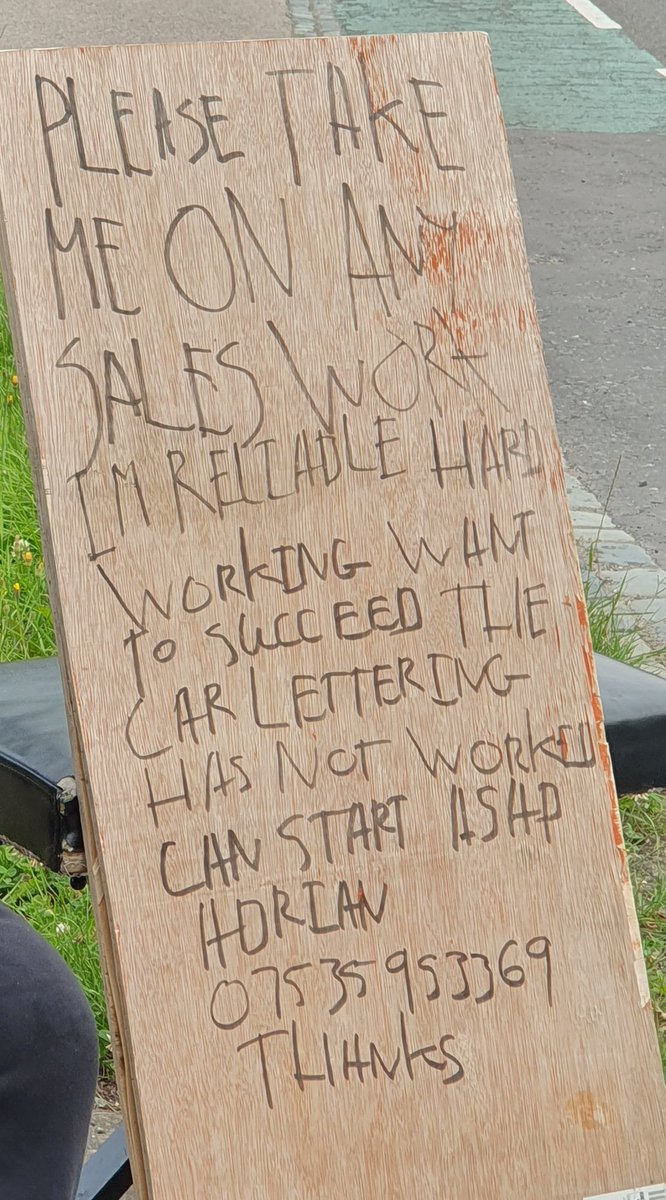 PLEASE TAKE
ME ON ANY
SALES WORK
I'M RELIABLE HARD
WORKING WANT
TO SUCCEED THE
CAR LETTERING
HAS NOT WORKED
CAN START ASAP
ADRIAN
07535953369
THANKS